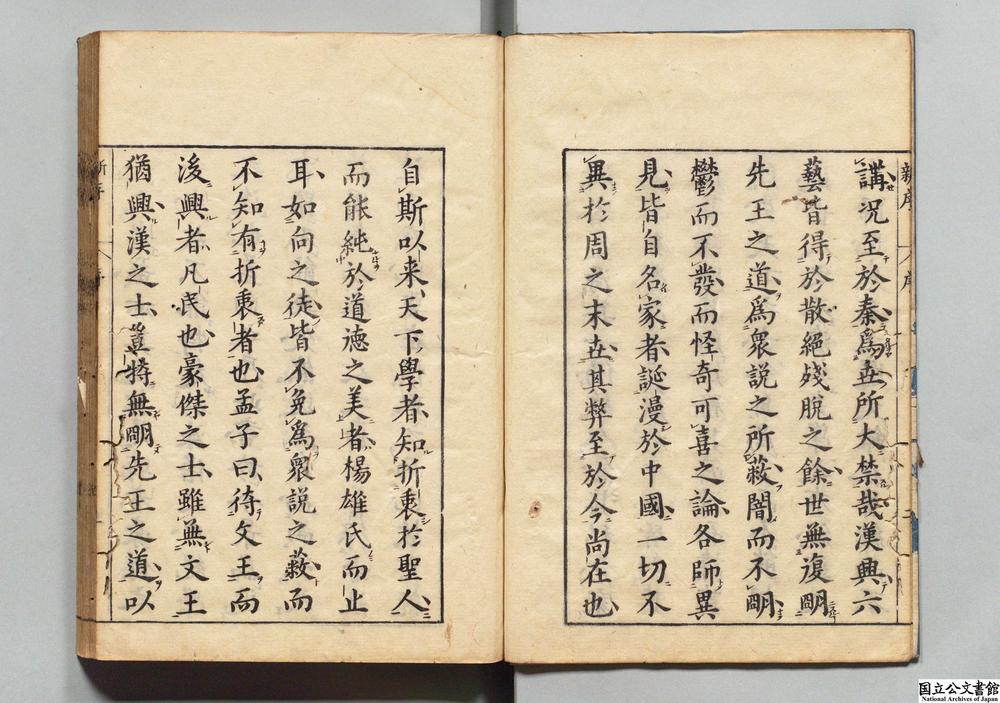 講况至於秦爲丗所大禁哉漢興六
藝皆得於散絕殘脫之餘世無復朙
先王之道爲衆說之所蔽闇而不朙
鬱而不發而怪奇可喜之論各師異
見皆自名家者誕漫於中國一切不
異於周之末丗其弊至於今尚在也
自斯以来天下學者知折衷於聖人
而能純於道徳之美者楊雄氏而止
耳如向之徒皆不免爲衆說之蔽而
不知有折衷者也孟子曰待文王而
後興者凡民也豪傑之士雖無文王
猶興漢之士豈特無朙先王之道以
新序
序
国立公文書館
National Archives of Japan